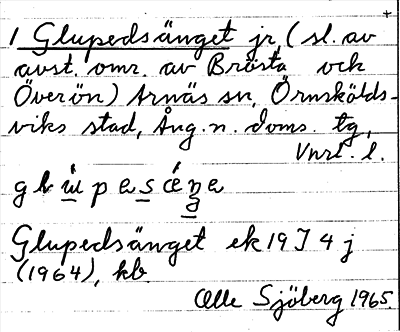 1 Glupedsänget jr (sl. av
avst. omr. av Brösta och
Överön) Arnäs sn, Örnskölds-
viks stad, Ång. n. doms. tg,
Vnrl. l.
Glupedsänget ek 19 J 4 j
(1964), kb.
Olle Sjöberg 1965.